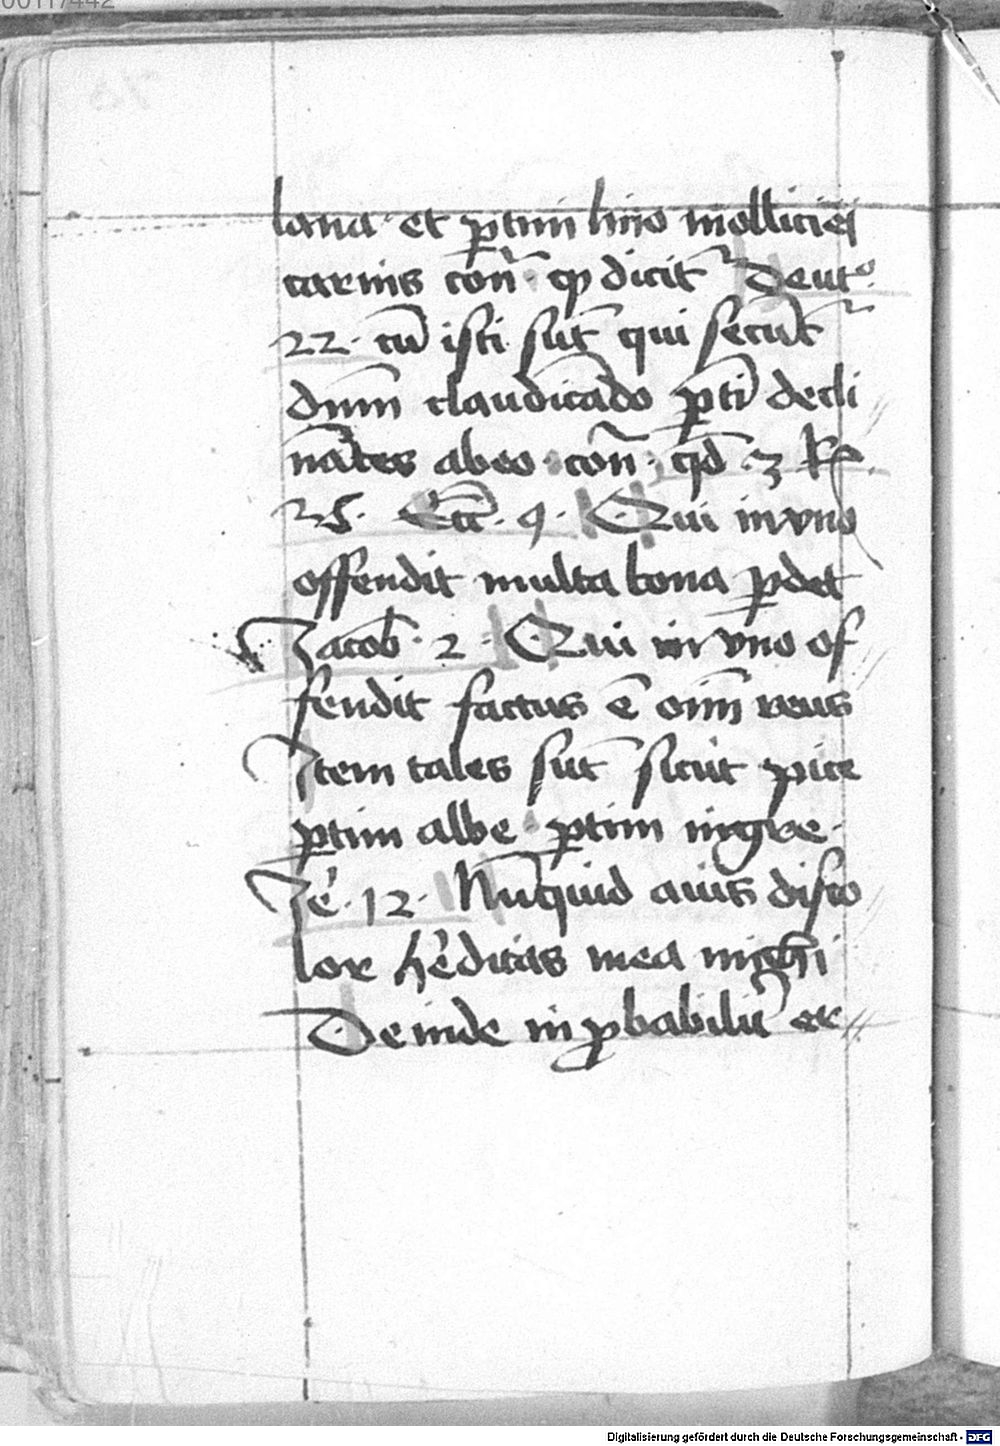 lana et ꝑtim lino molliciei
carnis con̄ ꝙ dicit᷑ Deut̊.
22. cū isti sūt qui secūt᷑
dn̄m claudicādo ꝑtī decli
nātes abeo con̄ qd̄ 3 Rꝝ
25. Ecc̄i. 9. Qui in vno
offendit multa bona ꝑdet
Jacob̄. 2. Qui in vno of
fendit factus ē oīm reus
Item tales sūt sicut pice
ꝑtim albe ꝑtim nigre
Jē. 12. Nūquid auis disco
lor he̅ditas mea michi
Deinde inꝓbabilit᷑ et
Digitalisierung gefördert durch die Deutsche Forschungsgemeinschaft - DFG